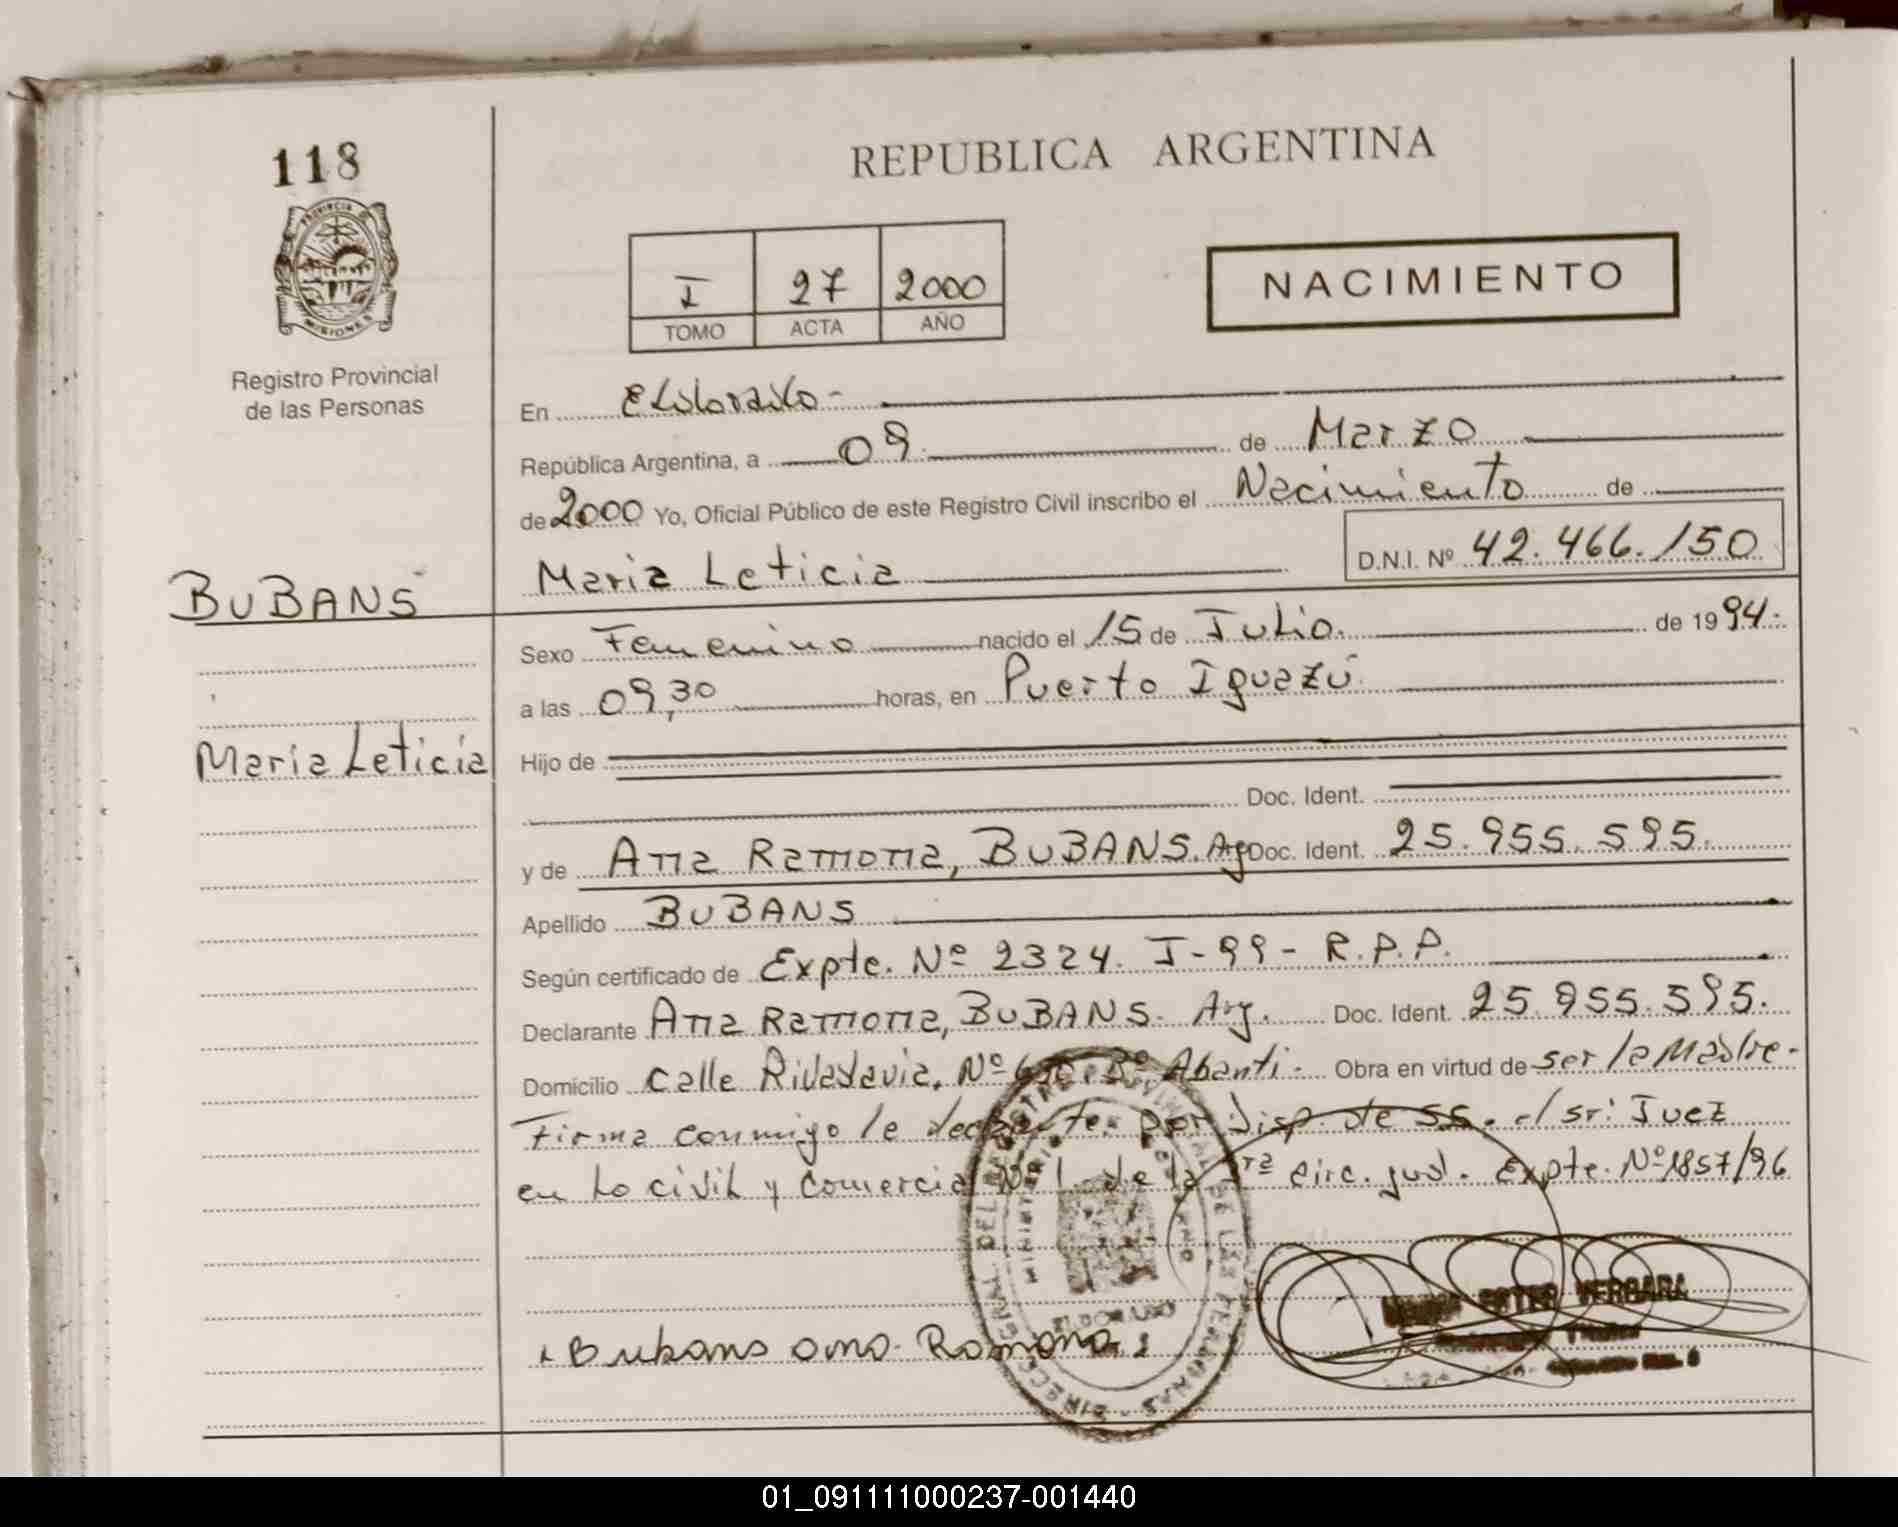 118
REPUBLICA ARGENTINA
PROVINCIA DE
MISIONES
Registro Provincial
de las Personas
I 27 2000
TOMO ACTA AÑO
NACIMIENTO
En Eldorado-
República Argentina, a 09 de Marzo
de 2000 Yo, Oficial Público de este Registro Civil inscribo el Nacimiento de
Maria Leticia D.N.I. Nº 42.466.150
BUBANS
Sexo Femenino nacido el 15 de Julio. de 1994.
a las 09,30 horas, en Puerto Iguazú.
Maria Leticia
Hijo de
Doc. Ident.
y de Ana Ramona, BUBANS. Arg Doc. Ident. 25.955.595.
Apellido BUBANS
Según certificado de Expte. Nº 2324. I-99- R.P.P.
Declarante Ana Ramona, BUBANS. Arg. Doc. Ident. 25.955.595.
Domicilio calle Rivadavia, Nº Bº Abanti. Obra en virtud de ser la Madre-
Firma conmigo la declarante. por disp. de SS. el sr: Juez
en Lo civil y Comercial Nº 1 de la circ. jud. Expte. Nº1857/96
DIRECCION GENERAL DEL REGISTRO PROVINCIAL DE LAS PERSONAS
MINISTERIO DE GOBIERNO
ELDORADO
Bubans ana Ramona
ESTER VERGARA
01_091111000237-001440